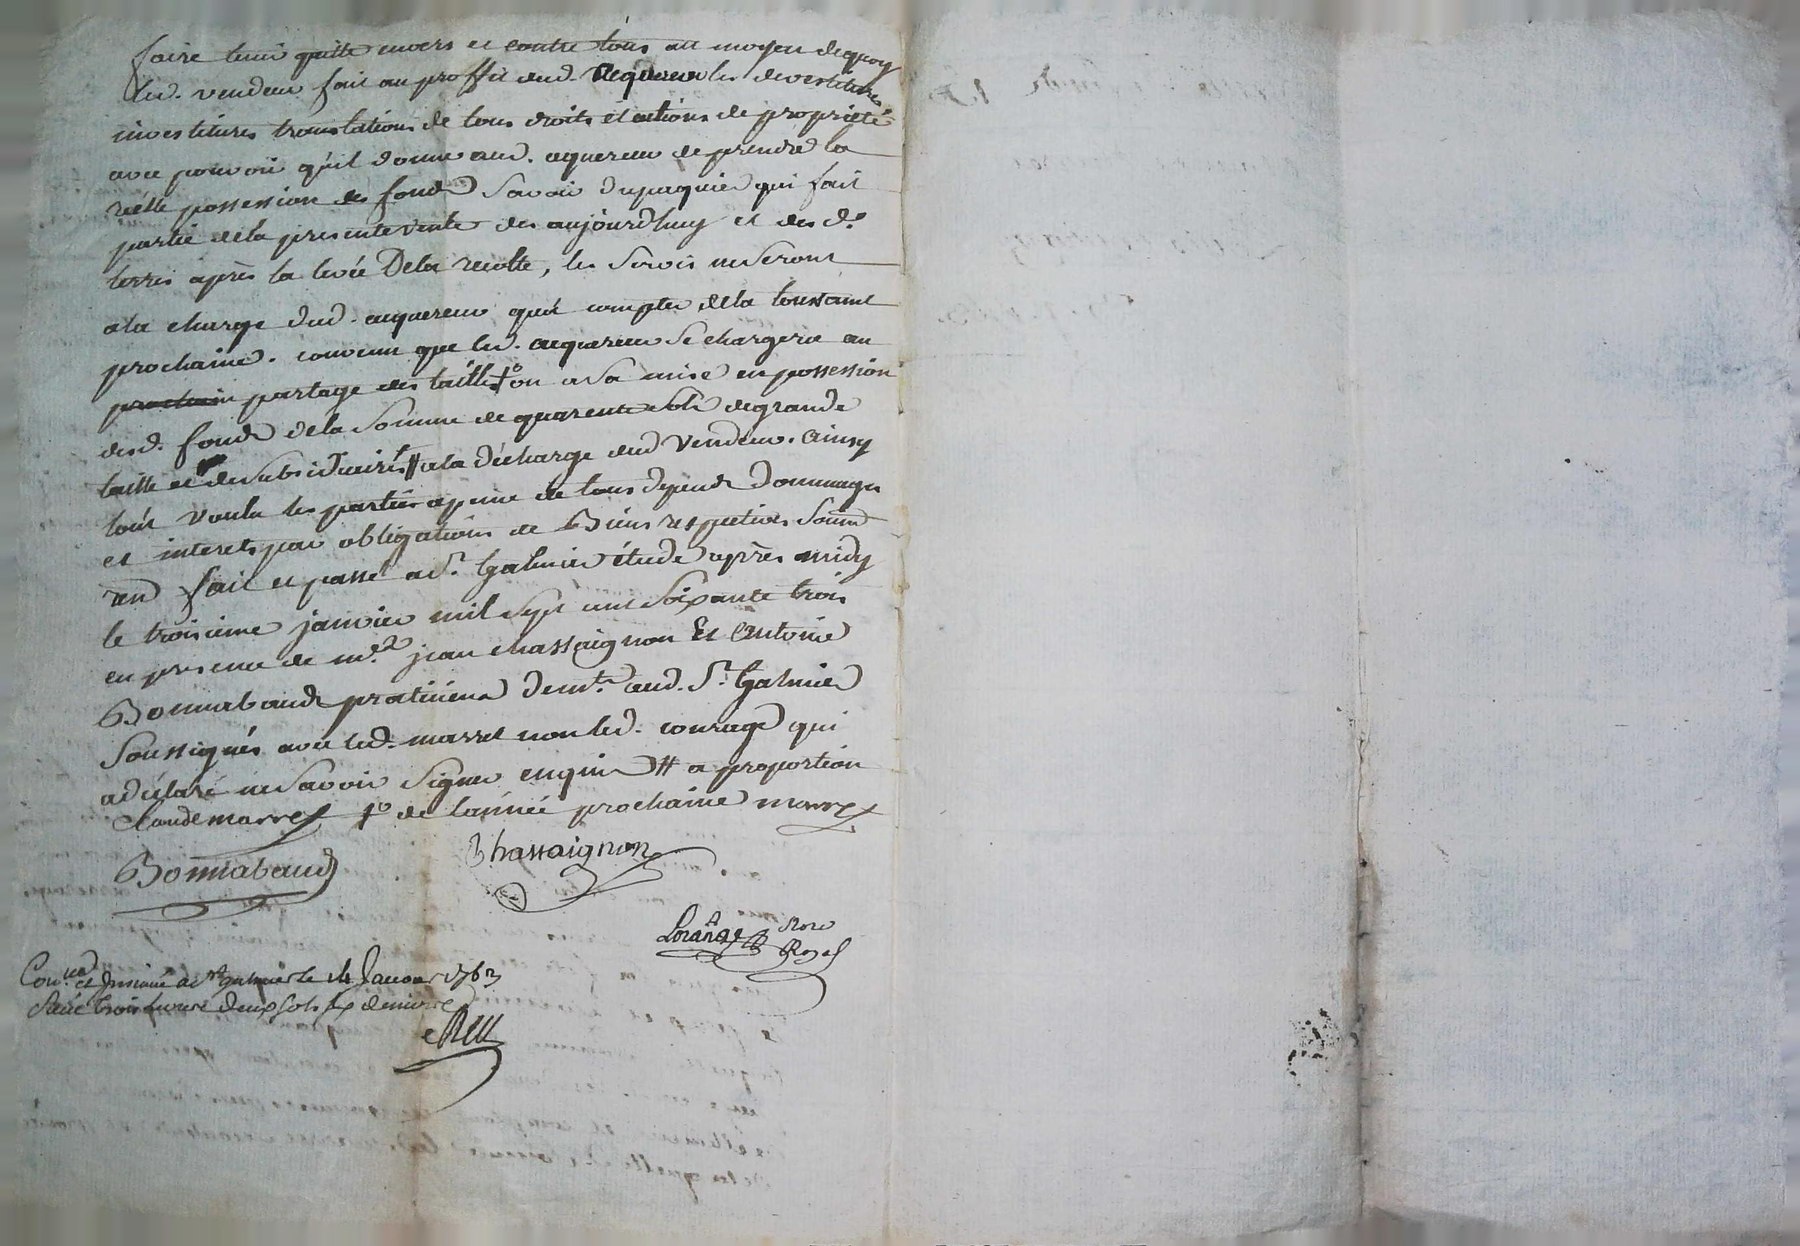 faire tenir quitte envers et contre tous au moyen dequoy
led. vendeur fait au proffit dud. acquereur les devestitures
investitures translations de tous droits et actions de propriété
avec pouvoir qu'il donne aud. aquereur de prendre la
réélle possession des fonds savoir du paquier qui fait
partie de la presente vente des aujourd'huy et des d.
terres après la levée De la recolte, les servis ne seront
a la charge dud. aquereur qu'a compter de la toussaint
prochaine. convenu que led. aquereur se chargera au
prochain partage des tailles ou a sa mise en possession
desd. fonds de la somme de quarente sols de grande
taille et des subsidiaires # a la décharge dud vendeur. ainsy
tout voulu les parties a peine de tous depends dommages
et interets par obligations de Biens respectives Soum
ren fait et passé a St. Galmier étude après midy
le troisième janvier mil sept cent soixante trois
en presence de me. jean chassaignon Et Antoine
Bonnabaud praticiens demt. aud. St. Galmier
soussignés avec led. marret non led. courage qui
a déclaré ne savoir signer enquis # a proportion
Claude marret fo de l'année prochaine marret
Bonnabaud
Chassaignon
Lorange
Not. Royal
Con.lé et Insinué a St galmier le 14 Janvier 1763
trois livres deux sols six deniers